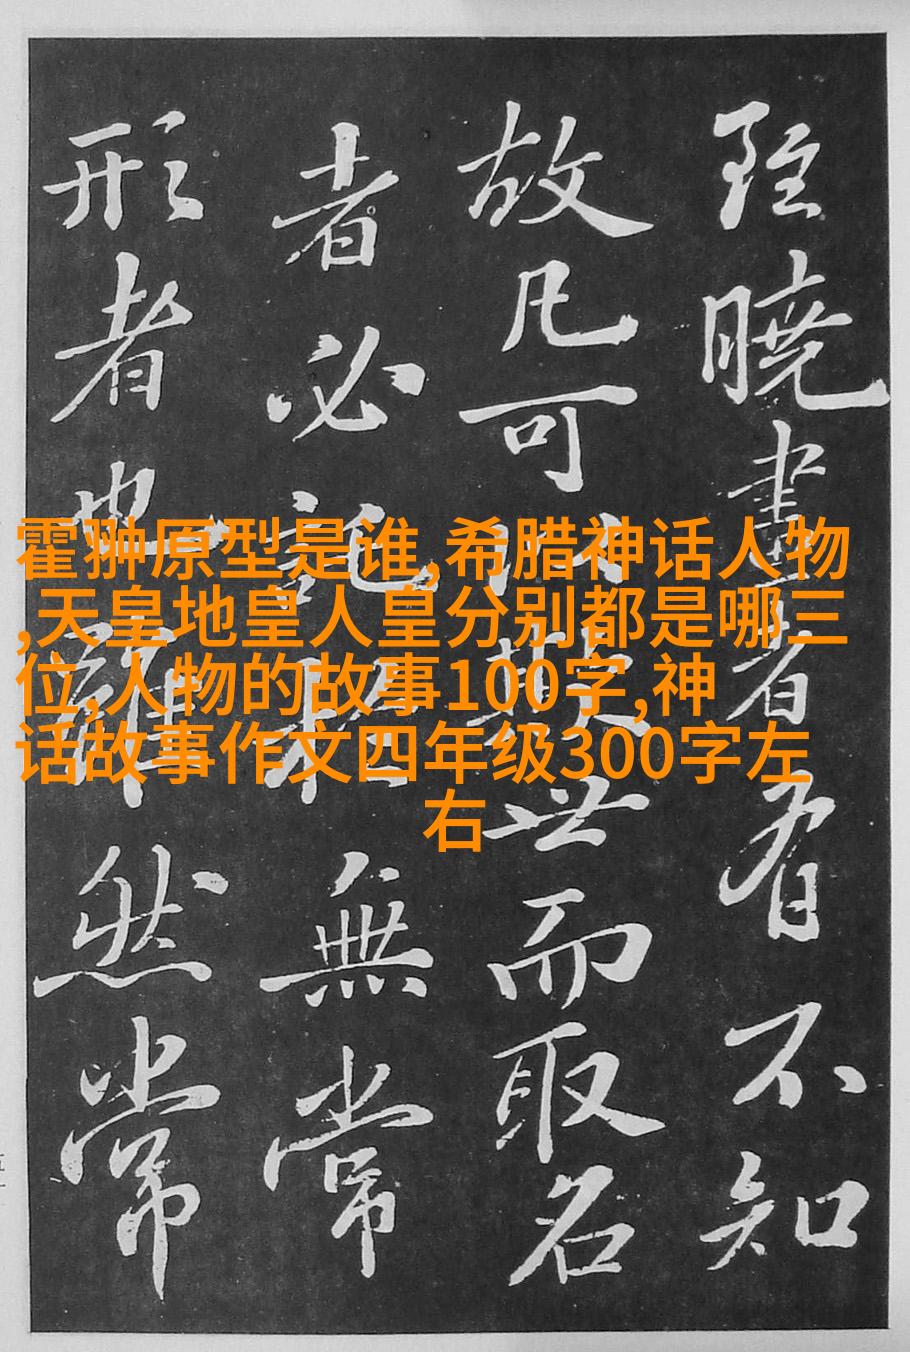 霍翀原型是谁,希腊神话人物
,天皇地皇人皇分别都是哪三
位,人物的故事100字,神
话故事作文四年级300字左
右
雖曉畫者有不知
故凡可以欺世而取名
者必託於無常
形者也雖然常